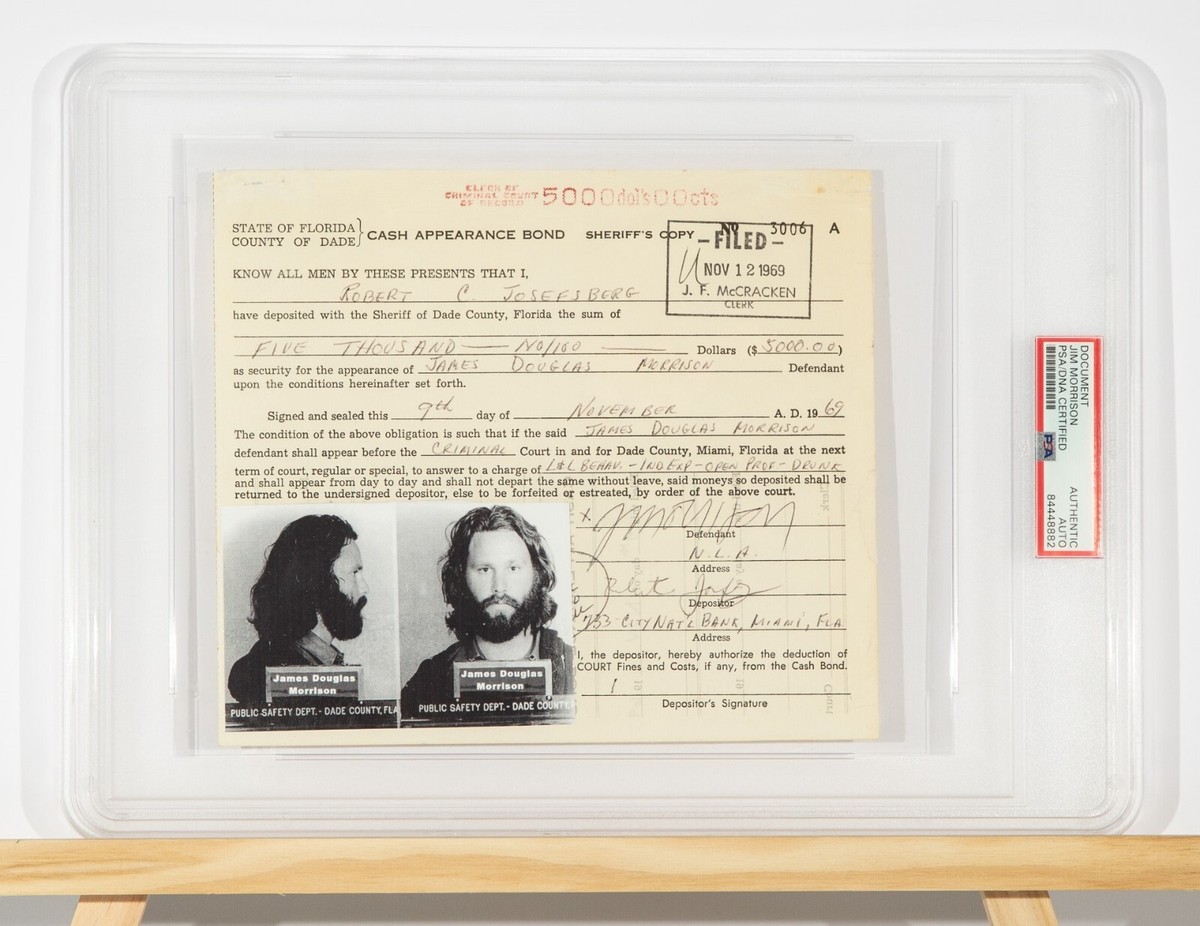 CLERK OF
CRIMINAL COURT
OF RECORD
5000dol's00cts
STATE OF FLORIDA
COUNTY OF DADE
CASH APPEARANCE BOND
SHERIFF'S COPY
No 3006 A
- FILED -
NOV 12 1969
J. F. McCRACKEN
CLERK
KNOW ALL MEN BY THESE PRESENTS THAT I,
ROBERT C. JOSEFSBERG
have deposited with the Sheriff of Dade County, Florida the sum of
FIVE THOUSAND — NO/100 — Dollars ($ 5000.00)
as security for the appearance of JAMES DOUGLAS MORRISON Defendant
upon the conditions hereinafter set forth.
Signed and sealed this 9th day of NOVEMBER A. D. 19 69
The condition of the above obligation is such that if the said JAMES DOUGLAS MORRISON
defendant shall appear before the CRIMINAL Court in and for Dade County, Miami, Florida at the next
term of court, regular or special, to answer to a charge of L&L BEHAV. - IND EXP - OPEN PROF - DRUNK
and shall appear from day to day and shall not depart the same without leave, said moneys so deposited shall be
returned to the undersigned depositor, else to be forfeited or estreated, by order of the above court.
X JMorrison
Defendant
N.L.A.
Address
Depositor
733 CITY NAT'L BANK, MIAMI, FLA.
Address
I, the depositor, hereby authorize the deduction of
COURT Fines and Costs, if any, from the Cash Bond.
Depositor's Signature
James Douglas
Morrison
PUBLIC SAFETY DEPT. - DADE COUNTY, FLA
James Douglas
Morrison
PUBLIC SAFETY DEPT. - DADE COUNTY,
DOCUMENT
JIM MORRISON
PSA/DNA CERTIFIED
PSA
AUTHENTIC
AUTO
84448882